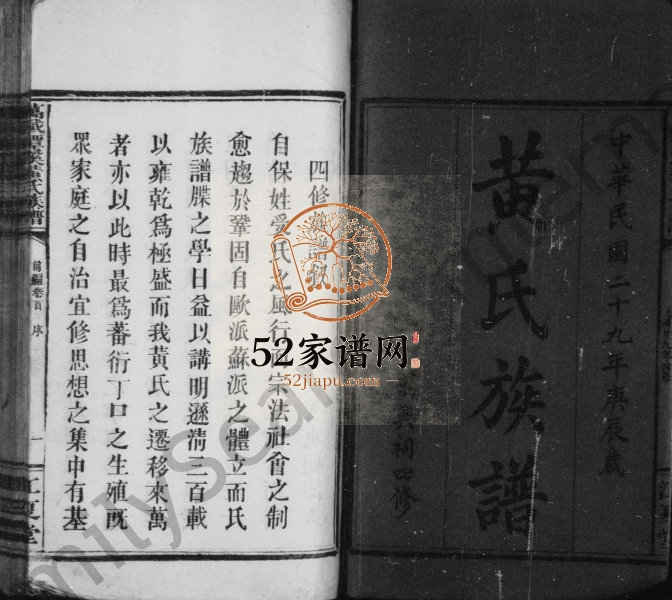 中華民國二十九年庚辰歲
黄氏族譜
興祠四修
四修族譜
自保姓受氏之風行而宗法社會之制
愈趨於鞏固自歐派蘇派之體立而氏
族譜牒之學日益以講明遜清三百載
以雍乾爲極盛而我黃氏之遷移來萬
者亦以此時最爲蕃衍丁口之生殖旣
眾家庭之自治宜修思想之集中有基
氏族譜
前編卷首 序
一
江夏堂
52家谱网
52jiapu.com